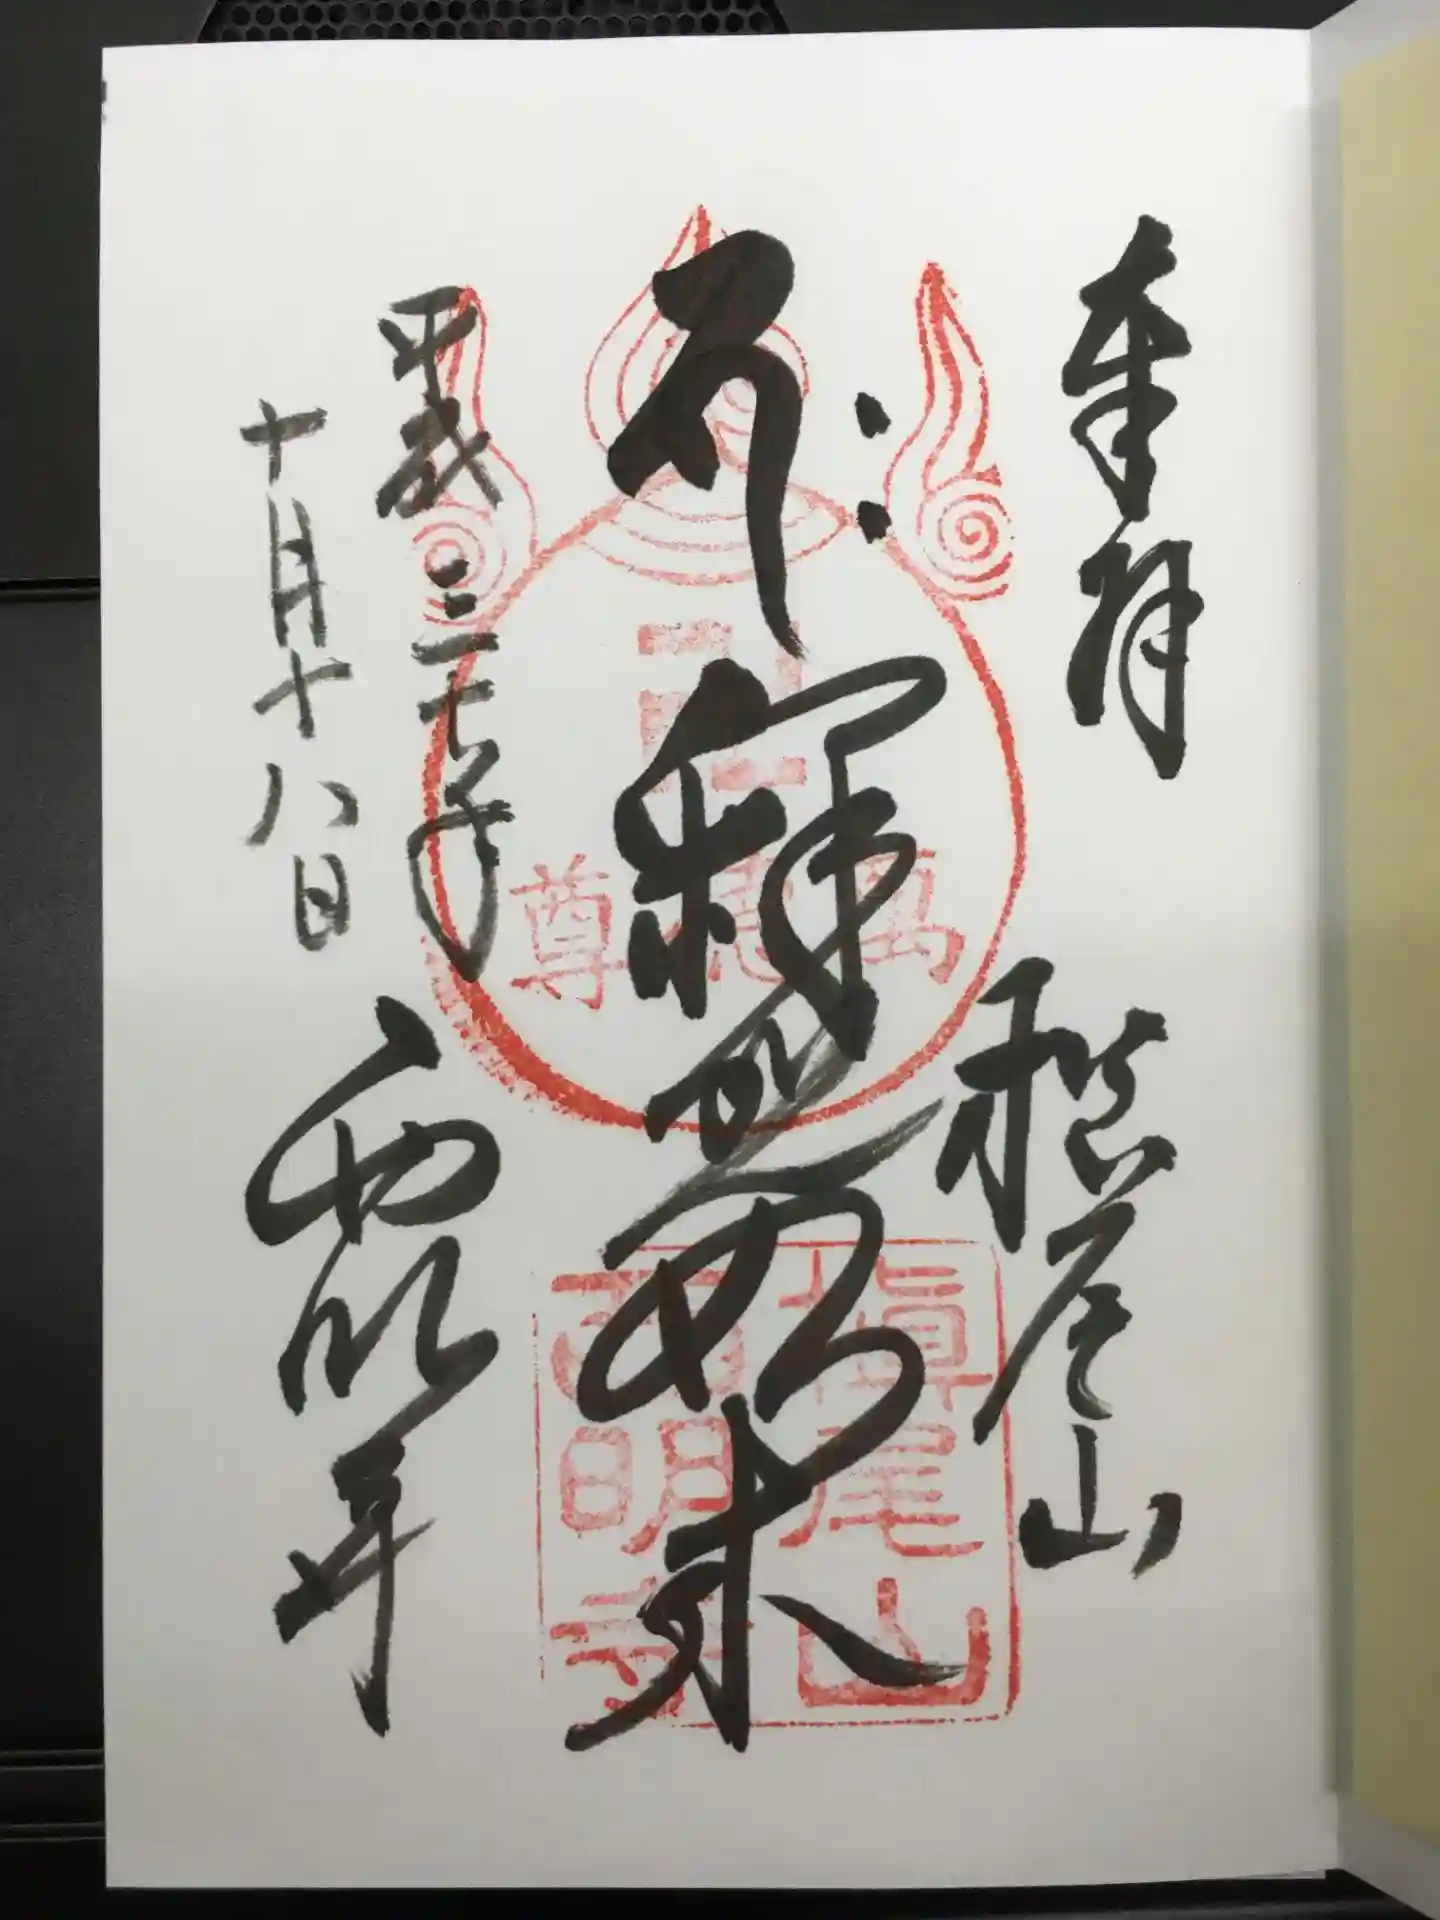 奉拝
槙尾山
釋迦如来
平成三十年
十月十八日
西明寺
萬
尊
槇尾山
西明寺